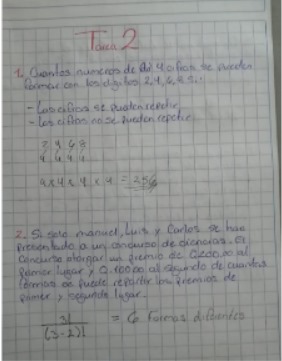 Tarea 2
1. Cuantos numeros de 4 cifras se pueden
formar con los digitos 2, 4, 6, 8 si:
- Las cifras se pueden repetir
- las cifras no se pueden repetir
2 4 6 8
4 4 4 4
4 x 4 x 4 x 4 = 256
2. Si solo manuel, Luis y Carlos se han
presentado a un concurso de ciencias. El
concurso otorgar un premio de Q.200.00 al
primer lugar y Q.100.00 al segundo de cuantas
formas se puede repartir los premios de
primer y segundo lugar.
3!
(3-2)!
= 6 formas diferentes